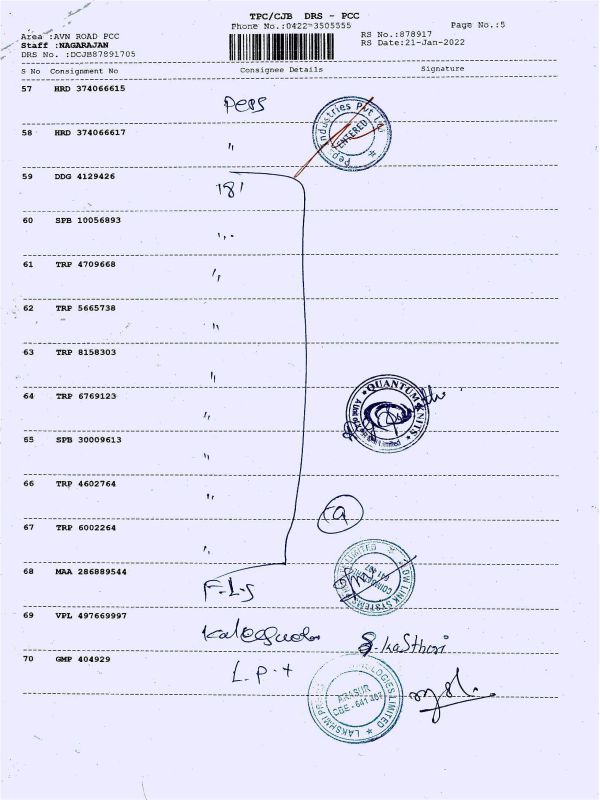 TPC/CJB DRS - PCC
Phone No.:0422-3505555
Page No.:5
Area :AVN ROAD PCC
Staff :NAGARAJAN
DRS No. :DCJB87891705
RS No.:878917
RS Date:21-Jan-2022
S No Consignment No Consignee Details Signature
57 HRD 374066615 Peps
Industries Pvt
ENTERED
58 HRD 374066617 "
59 DDG 4129426 181
60 SPB 10056893 "
61 TRP 4709668 "
62 TRP 5665738 "
63 TRP 8158303 "
64 TRP 6769123 "
QUANTUM KNITS
Limited
65 SPB 30009613 "
66 TRP 4602764 "
67 TRP 6002264 "
68 MAA 286889544 F-L-S
FLOW LINK SYSTEMS LIMITED
COIMBATORE
641 407
69 VPL 497669997 S. kaSthuri
70 GMP 404929 L.P.T
LAKSHMI LIMITED
ARASUR
CBE - 641 407